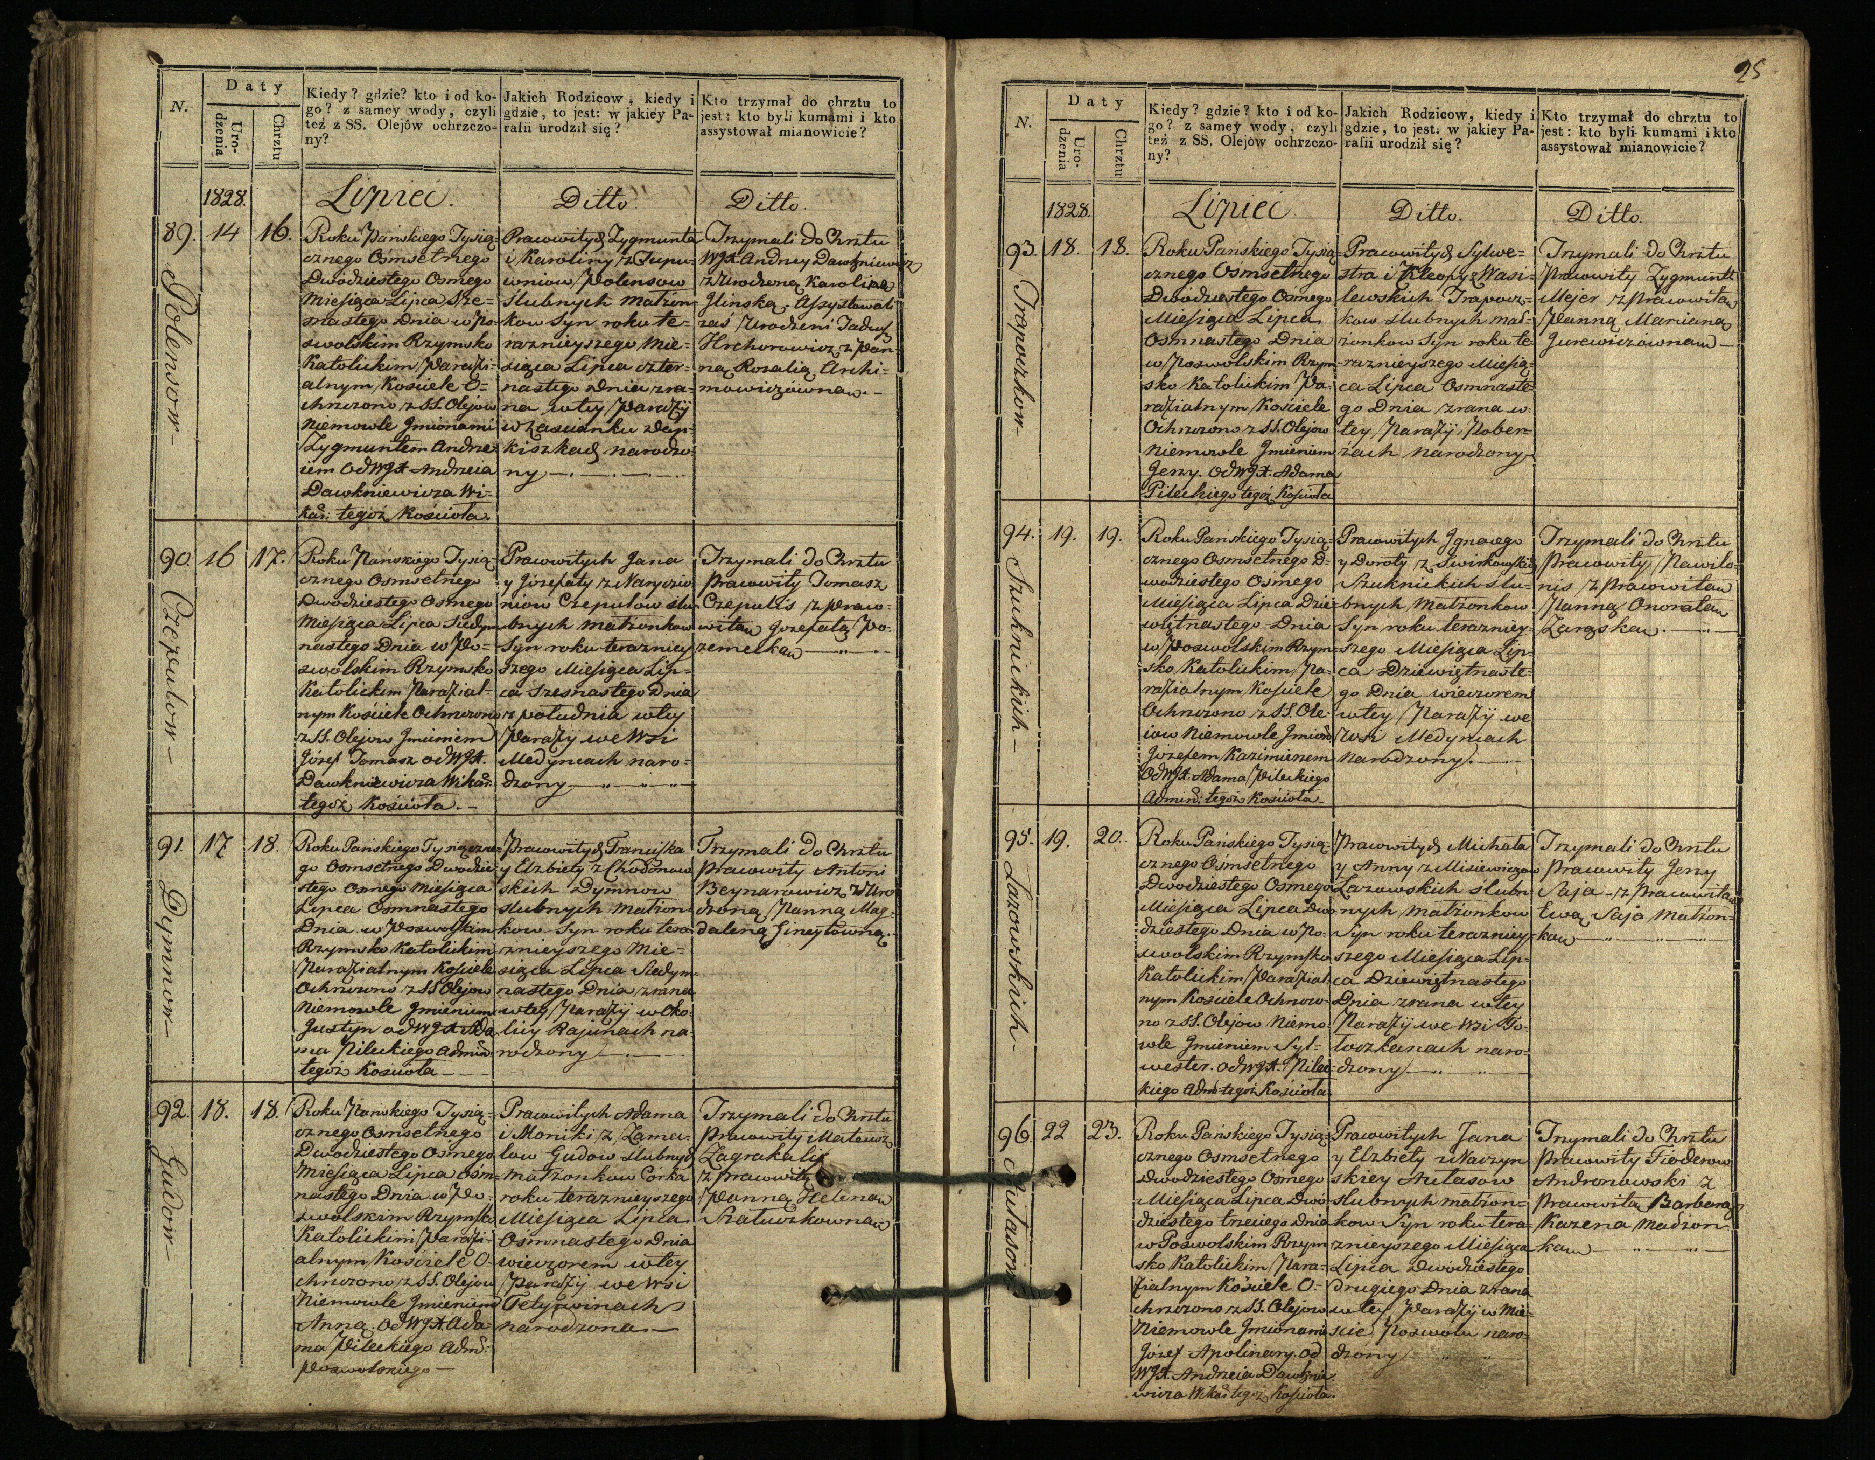 N.
Daty
Urodzenia
Chrztu
Kiedy? gdzie? kto i od ko-
go? z samey wody, czyli
też z SS. Olejów ochrzczo-
ny?
Jakich Rodzicow, kiedy i
gdzie, to jest: w jakiey Pa-
rafii urodził się?
Kto trzymał do chrztu to
jest: kto byli kumami i kto
assystował mianowicie?
1828.
Lipiec.
Ditto.
Ditto.
89. 14 16.
Polensow
Roku Pańskiego Tysią-
cznego Osmsetnego
Dwódziestego Osmego
Miesiąca Lipca Sze-
snastego Dnia w Po-
swolskim Rzymsko
Katolickim Parafi-
alnym Kościele O-
chrzczono z SS. Olejow
Niemowle Jmionami
Zygmuntem Andrze-
iem od WJX Andrzeia
Dawkniewicza Wi-
kar: tegóż Kościoła.
Pracowitych Zygmunta
i Karoliny z
Polensow
Slubnych Małżon-
kow Syn roku te-
raznieyszego Mie-
siąca Lipca czter-
nastego Dnia zra-
na w tey Parafij
w Zascianku
narodzo-
ny
Trzymali do Chrztu
WJX Andrzey Dawkniewicz
z Urodzoną Karoliną
Glinską. Assystowali
zaś Urodzeni Tadeusz
Hrehorowicz z Pan-
ną Rozalią Archi-
mowiczówną.
90. 16 17.
Czepulow
Roku Pańskiego Tysią-
cznego Osmsetnego
Dwodziestego Osmego
Miesiąca Lipca Siedym-
nastego Dnia w Po-
swolskim Rzymsko
Katolickim Parafial-
nym Kościele Ochrzczono
z SS. Olejow Jmieniem
Józef Tomasz od WJX.
Dawkniewicza Wikar:
tegóż Kościoła.
Pracowitych Jana
y Józefaty z
Czepulow slu-
bnych Małżonkow
Syn roku terazniey-
szego Miesiąca Lip-
ca Szesnastego Dnia
z południa w tey
Parafij we Wsi
Medyniach naro-
dzony
Trzymali do Chrztu
Pracowity Tomasz
Czepulis z Praco-
witą Jozefatą
91. 17 18.
Dymmow
Roku Pańskiego Tysiączne-
go Osmsetnego Dwodzie-
stego Osmego Miesiąca
Lipca Osmnastego
Dnia w Poswolskim
Rzymsko Katolickim
Parafialnym Kościele
Ochrzczono z SS Olejow
Niemowle Jmieniem
Justyn od WJX Ada-
ma Pileckiego Admin:
tegóż Kościoła
Pracowitych Franciszka
y Elzbiety z Chodźnow-
skich Dymmow
slubnych Małżon-
kow Syn roku tera-
znieyszego Mie-
siąca Lipca Siedym-
nastego Dnia zrana
w tey Parafij w Oko-
licy Rajunach na-
rodzony
Trzymali do Chrztu
Pracowity Antoni
Beynarowicz z Uro-
dzoną Panną Mag-
daleną Gineytówną.
92. 18. 18.
Gudow
Roku Pańskiego Tysią-
cznego Osmsetnego
Dwodziestego Osmego
Miesiąca Lipca Osm-
nastego Dnia w Po-
swolskim Rzymsko
Katolickim Parafi-
alnym Kościele O-
chrzczono z SS. Olejow
Niemowle Jmieniem
Anna. od WJX. Ada-
ma Pileckiego Adm:
Poswolskiego
Pracowitych Adama
i Moniki z
Gudow slubnych
Małżonkow Corka
roku teraznieyszego
Miesiąca Lipca
Osmnastego Dnia
wieczorem w tey
Parafij we Wsi
narodzona
Trzymali do Chrztu
Pracowity Mateusz
Zagrakalis
z Pracowitą
Panną Heleną
25
N.
Daty
Urodzenia
Chrztu
Kiedy? gdzie? kto i od ko-
go? z samey wody, czyli
też z SS. Olejów ochrzczo-
ny?
Jakich Rodzicow, kiedy i
gdzie, to jest: w jakiey Pa-
rafii urodził się?
Kto trzymał do chrztu to
jest: kto byli kumami i kto
assystował mianowicie?
1828.
Lipiec.
Ditto.
Ditto.
93. 18. 18.
Traposzkow
Roku Pańskiego Tysią-
cznego Osmsetnego
Dwodziestego Osmego
Miesiąca Lipca
Osmnastego Dnia
w Poswolskim Rzym-
sko Katolickim Pa-
rafialnym Kościele
Ochrzczono z SS. Olejow
Niemowle Jmieniem
Jerzy. od WJX. Adama
Pileckiego tegóż Kościoła
Pracowitych Sylwe-
stra i Kleofy z Wasi-
lewskich Traposz-
kow slubnych Mał-
żonkow Syn roku te-
raznieyszego Miesią-
ca Lipca Osmnaste-
go Dnia zrana w
tey Parafij Pober-
żach Narodzony
Trzymali do Chrztu
Pracowity Zygmunt
Mejer z Pracowitą
Panną Marianą
Jurewiczowną
94. 19. 19.
Szuknickich
Roku Pańskiego Tysią-
cznego Osmsetnego D-
wodziestego Osmego
Miesiąca Lipca Dzie-
więtnastego Dnia
w Poswolskim Rzym-
sko Katolickim Pa-
rafialnym Kościele
Ochrzczono z SS. Ole-
iow Niemowle Jmion:
Józefem Kazimierzem
Od WJX. Adama Pileckiego
Admin: tegóż Kościoła
Pracowitych Jgnacego
y Doroty z
Szuknickich slu-
bnych Małżonkow
Syn roku terazniey-
szego Miesiąca Lip-
ca Dziewiętnaste-
go Dnia wieczorem
w tey Parafij we
Wsi Medyniach
Narodzony.
Trzymali do Chrztu
Pracowity Pawilo-
nis z Pracowitą
Panną Onoratą
Zaręską
95. 19. 20.
Lazowskich
Roku Pańskiego Tysią-
cznego Osmsetnego
Dwodziestego Osmego
Miesiąca Lipca Dwo-
dziestego Dnia w Po-
swolskim Rzymsko
Katolickim Parafial-
nym Kościele Ochrzczo-
no z SS. Olejow Niemo-
wle Jmieniem Syl-
wester. od WJX. Pilec-
kiego Adm: tegóż Kościoła
Pracowitych Michała
y Anny z Misiewiczow
Lazowskich slub-
nych Małżonkow
Syn roku terazniey-
szego Miesiąca Lip-
ca Dziewiętnastego
Dnia zrana w tey
Parafij we Wsi To-
łoczkanach naro-
dzony
Trzymali do Chrztu
Pracowity Jerzy
Saja z Pracowitą
Ewą Saja Małżon-
ką
96. 22 23.
Autasow
Roku Pańskiego Tysią-
cznego Osmsetnego
Dwodziestego Osmego
Miesiąca Lipca Dwo-
dziestego trzeciego Dnia
w Poswolskim Rzym-
sko Katolickim Para-
fialnym Kościele O-
chrzczono z SS. Olejow
Niemowle Jmionami
Józef Apolinary. od
WJX. Andrzeia Dawknie-
wicza Wikar: tegóż Kościoła.
Pracowitych Jana
y Elzbiety z
Autasow
slubnych Małżon-
kow Syn roku tera-
znieyszego Miesiąca
Lipca Dwodziestego
drugiego Dnia zrana
w tey Parafij w Mie-
ście Poswolu naro-
dzony
Trzymali do Chrztu
Pracowity
Andronowski z
Pracowitą Barbarą
Kazena Małżon-
ką